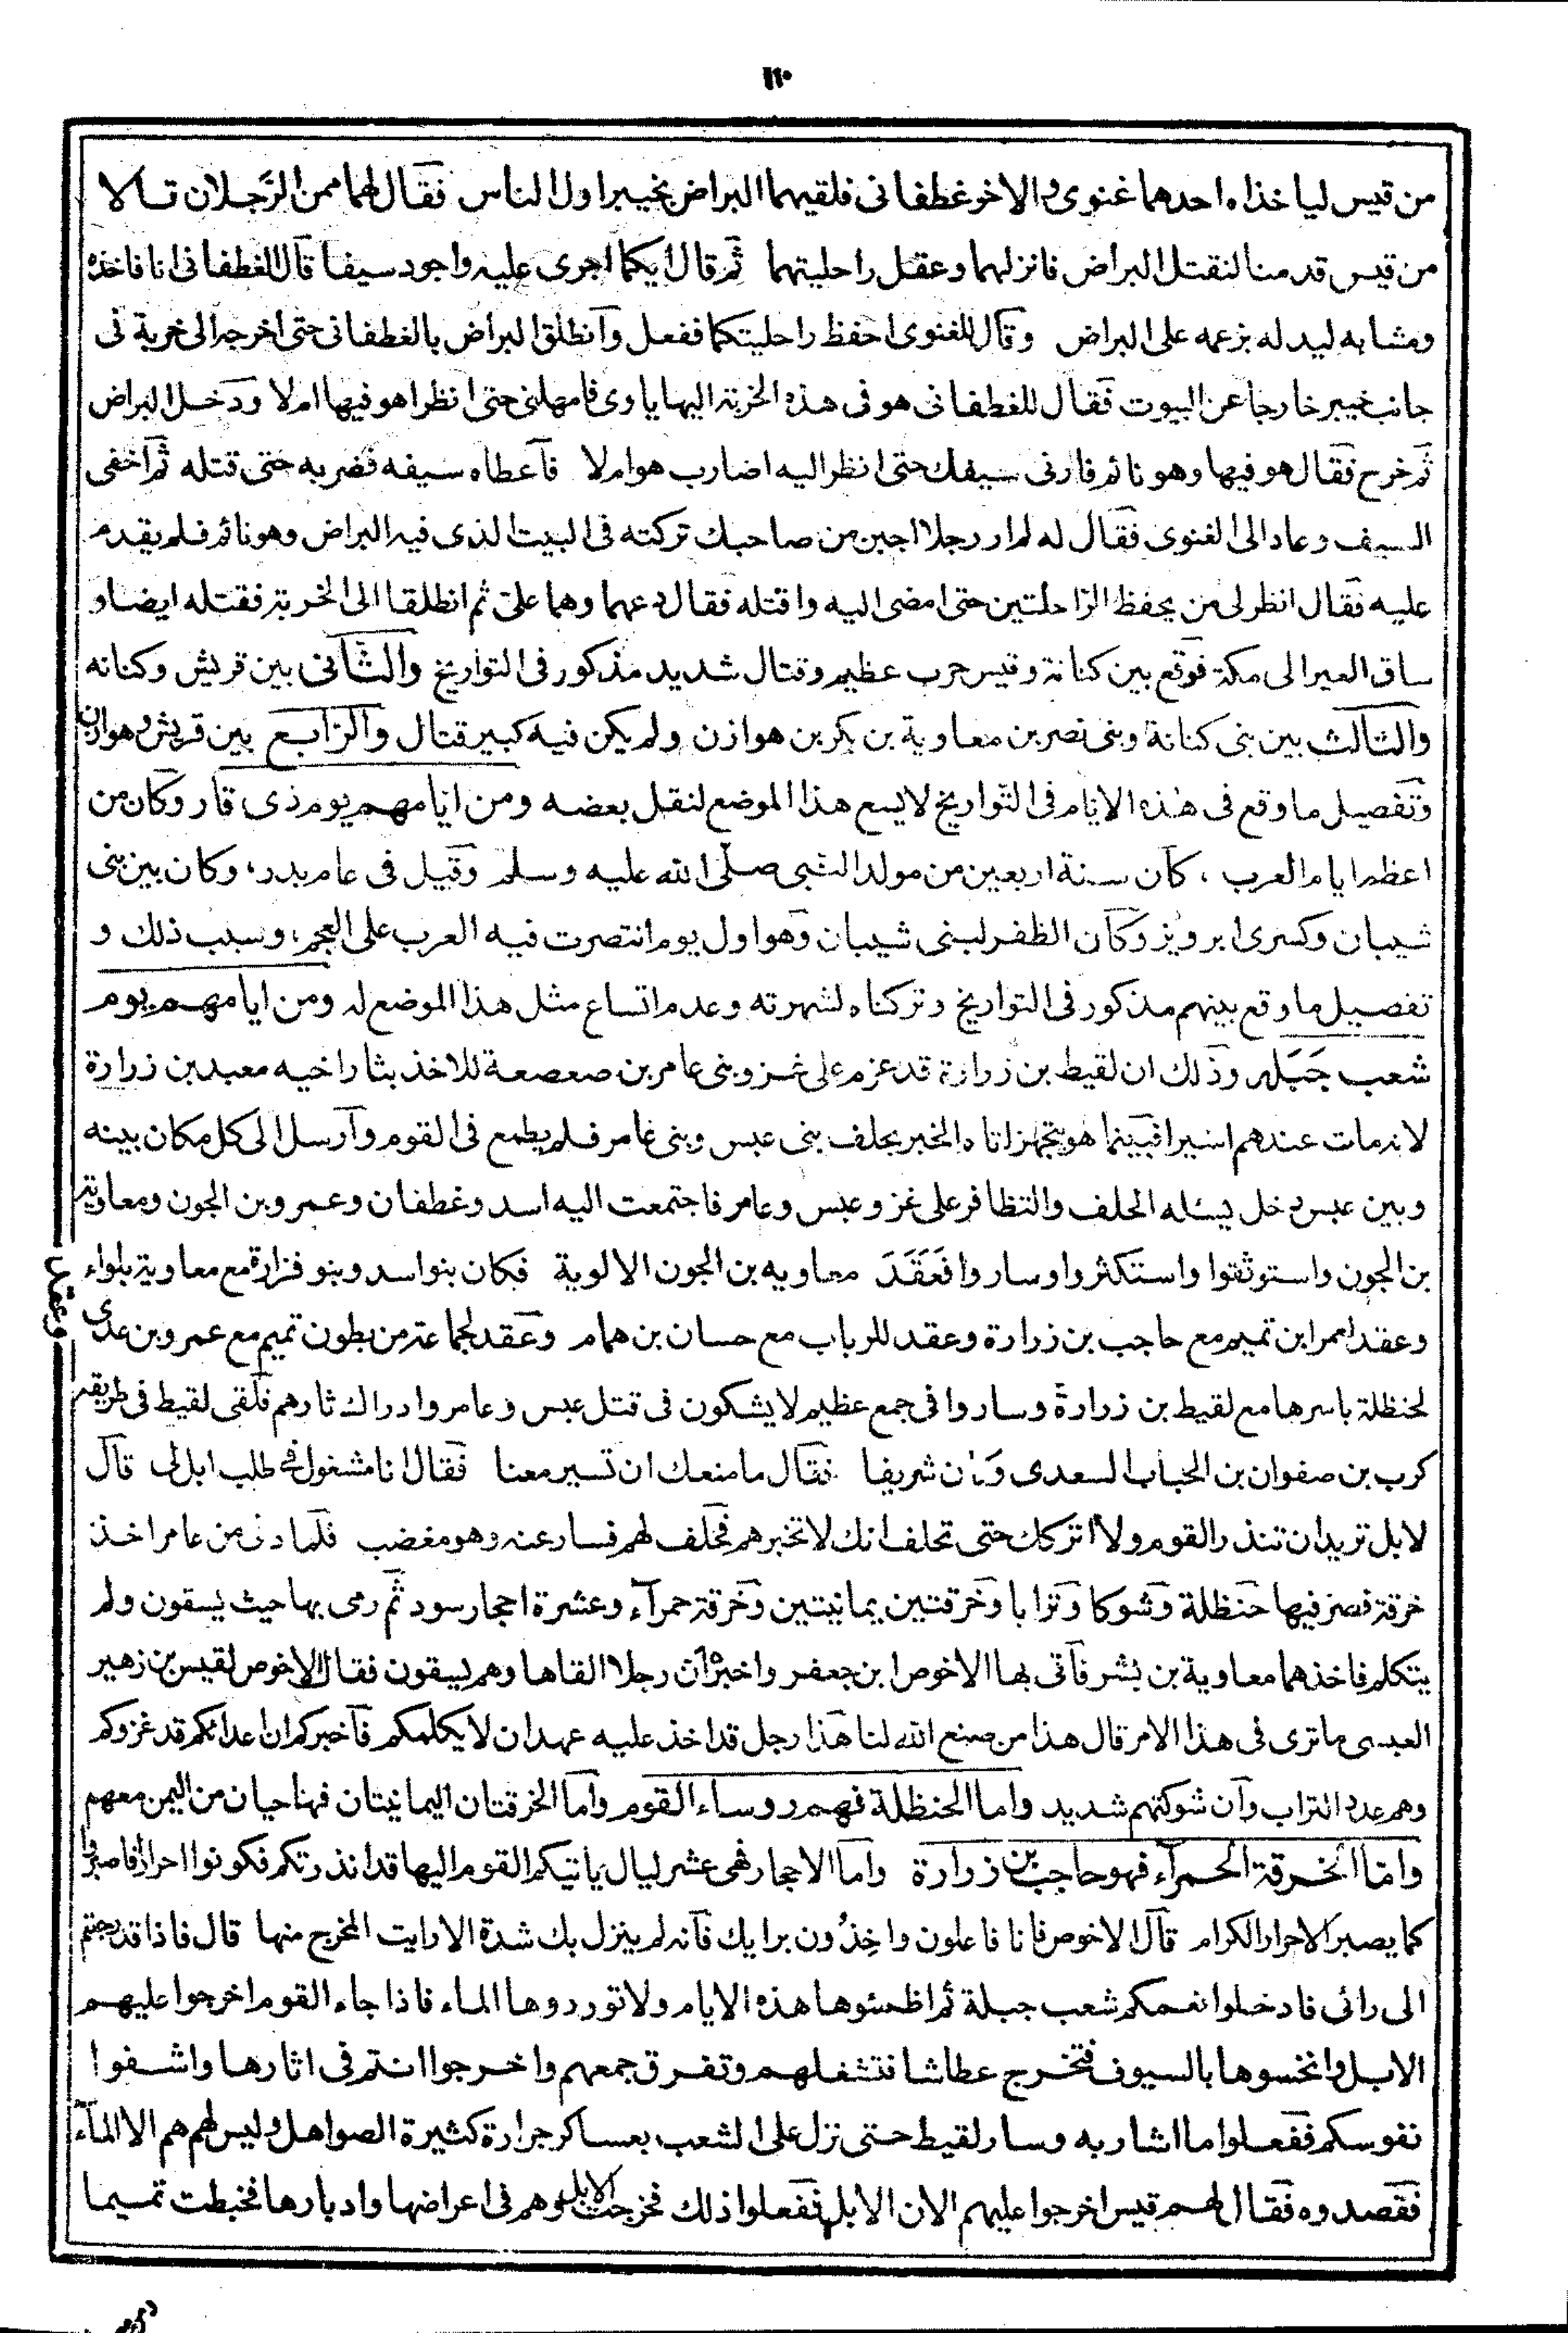 ١١٠
من قيس لياخذاه احدهما غنوى والاخر غطفانى فلقيهما البراض بخيبر اول الناس فقال لهما ممن الرَّجلان قالا
من قيس قدمنا لنقتل البراض فانزلهما وعقل راحليتهما ثم قال ايكما اجرى عليه واجود سيفا قال الغطفانى انا فاخذه
ومشا به ليدله بزعمه على البراض وقال للغنوى احفظ راحليتكما ففعل وانطلق البراض بالغطفانى حتى اخرجه الى خربة فى
جانب خيبر خارجا عن البيوت فقال للغطفانى هو فى هذه الخربة اليها ياوى فامهلنى حتى انظر اهو فيها ام لا ودخل البراض
ثم خرج فقال هو فيها وهو نائم فارنى سيفك حتى انظر اليه اضارب هو ام لا فاعطاه سيفه فضربه حتى قتله ثم اخفى
السيف وعاد الى الغنوى فقال له لم ار رجلا اجبن من صاحبك تركته فى البيت الذى فيه البراض وهو نائم فلم يقدم
عليه فقال انظر لى من يحفظ الراحلتين حتى امضى اليه واقتله فقال دعهما وهما علىّ ثم انطلقا الى الخربة فقتله ايضا و
ساق العير الى مكة فوقع بين كنانة وقيس حرب عظيم وقتال شديد مذكور فى التواريخ والثَّانى بين قريش وكنانه
والثالث بين بنى كنانة وبنى نصر بن معاوية بن بكر بن هوازن ولم يكن فيه كبير قتال والرَّابع بين قريش وهوازن
وتفصيل ما وقع فى هذه الايام فى التواريخ لايسع هذا الموضع لنقل بعضه ومن ايامهم يوم ذى قار وكان من
اعظم ايام العرب ، كان سنة اربعين من مولد النبى صلّى الله عليه وسلم وقيل فى عام بدر، وكان بين بنى
شيبان وكسرى ابرويز وكان الظفر لبنى شيبان وهو اول يوم انتصرت فيه العرب على العجم، وسبب ذلك و
تفصيل ما وقع بينهم مذكور فى التواريخ وتركناه لشهرته وعدم اتساع مثل هذا الموضع له ومن ايامهم يوم
شعب جَبَله وذلك ان لقيط بن زرارة قد عزم على غزو بنى عامر بن صعصعة للاخذ بثار اخيه معبد بن زرارة
لانه مات عندهم اسيرا فبينما هو يتجهز اتاه الخبر بحلف بنى عبس وبنى عامر فلم يطمع فى القوم وارسل الى كل مكان بينه
وبين عبس دخل يسئله الحلف والتظافر على غزو عبس وعامر فاجتمعت اليه اسد وغطفان وعمرو بن الجون ومعاوية
بن الجون واستوثقوا واستكثروا وساروا فَعَقَدَ معاويه بن الجون الالوية فكان بنو اسد وبنو فزارة مع معاوية بلواء
وعقد لعمرا بن تميم مع حاجب بن زرارة وعقد للرباب مع حسان بن همام وعقد لجماعة من بطون تميم مع عمرو بن عدى
وعقد
لحنظلة باسرها مع لقيط بن زرارة وساروا فى جمع عظيم لا يشكون فى قتل عبس وعامر وادراك ثارهم فلقى لقيط فى طريقه
كرب بن صفوان بن الحباب السعدى وكان شريفا فقال ما منعك ان تسير معنا فقال انا مشغول فى طلب ابل لى قال
لا بل تريد ان تنذر القوم ولا اتركك حتى تحلف انك لا تخبرهم فحلف لهم فسار عنه وهو مغضب فلما دنى من عامر اخذ
خرقة فصر فيها حنظلة وشوكا وترابا وخرقتين يمانيتين وخرقة حمرآء وعشرة احجار سود ثم رمى بها حيث يسقون ولم
يتكلم فاخذهما معاوية بن بشر فاتى بها الاخوص ابن جعفر واخبره ان رجلا القاها وهم يسقون فقال الاخوص لقيس بن زهير
العبسى ما ترى فى هذا الامر قال هذا من صنع الله لنا هذا رجل قد اخذ عليه عهد ان لا يكلمكم فاخبركم ان اعدائكم قد غزوكم
وهم عدد التراب وان شوكتهم شديد واما الحنظلة فهم روساء القوم واما الخرقتان اليمانيتان فهنا حيان من اليمن معهم
وامّا الخرقة الحمرآء فهو حاجب بن زرارة واما الاحجار فهى عشر ليال ياتيكم القوم اليها قد انذرتكم فكونوا احرارا فاصبروا
كما يصبر الاحرار الكرام قال الاخوص فانا فاعلون واخِذُون برايك فانه لم ينزل بك شدة الا رايت المخرج منها قال فاذا قد رجعتم
الى رائى فادخلوا نعمكم شعب جبلة ثم اظمئوها هذه الايام ولا توردوها الماء فاذا جاء القوم اخرجوا عليهم
الابل وانخسوها بالسيوف فتخرج عطاشا فتشغلهم وتفرق جمعهم واخرجوا انتم فى اثارها واشفوا
نفوسكم ففعلوا ما اشار به وسار لقيط حتى نزل على الشعب بعساكر جرارة كثيرة الصواهل وليس لهم هم الا المآء
فقصدوه فقال لهم قيس اخرجوا عليهم الان الابل ففعلوا ذلك فخرجت الابل وهم فى اعراضها وادبارها فخبطت تميما